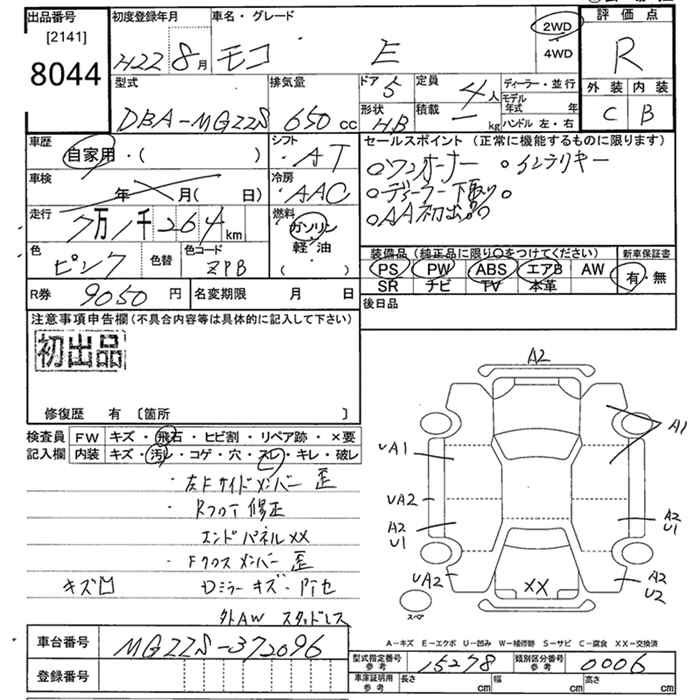 出品番号 [2141] 8044
初度登録年月 H22 8月
車名・グレード モコ E
2WD
4WD
評価点 R
外装 C 内装 B
型式 DBA-MG22S
排気量 650 cc
ドア 5 定員 4人
形状 H.B 積載 - kg
ディーラー・並行
モデル年式 年
ハンドル 左・右
車歴 自家用・( )
シフト ・AT
車検 年 月( 日)
冷房 ・AAC
走行 7万1千264km
燃料 ガソリン 軽油 ( )
色 ピンク 色替 色コード ZPB
R券 9050円 名変期限 月 日
セールスポイント (正常に機能するものに限ります)
○ワンオーナー ○インテリキー
○ディーラー下取り○
○AA初出品○
装備品(純正品に限り○をつけてください) 新車保証書
PS PW ABS エアB AW 有・無
SR ナビ TV 本革
後日品
注意事項申告欄(不具合内容等は具体的に記入して下さい)
初出品
修復歴 有 [箇所 ]
検査員 FW キズ・飛石・ヒビ割・リペア跡・×要
記入欄 内装 キズ・汚レ・コゲ・穴・スレ・キレ・破レ
・左Fサイドメンバー 歪
・Rフロア 修正
エンドパネル XX
・Fクロスメンバー 歪
キズ凹 Dミラーキズ・
外AW スタッドレス
車台番号 MG22S-372096
登録番号
A2
A1
UA1
UA2
A2
U1
A2
U1
UA2
XX
A2
U2
スペア
A-キズ E-エクボ U-凹み W-補修跡 S-サビ C-腐食 XX-交換済
型式指定番号 参考 15278 類別区分番号 参考 0006
車庫証明用 参考 長さ cm 幅 cm 高さ cm